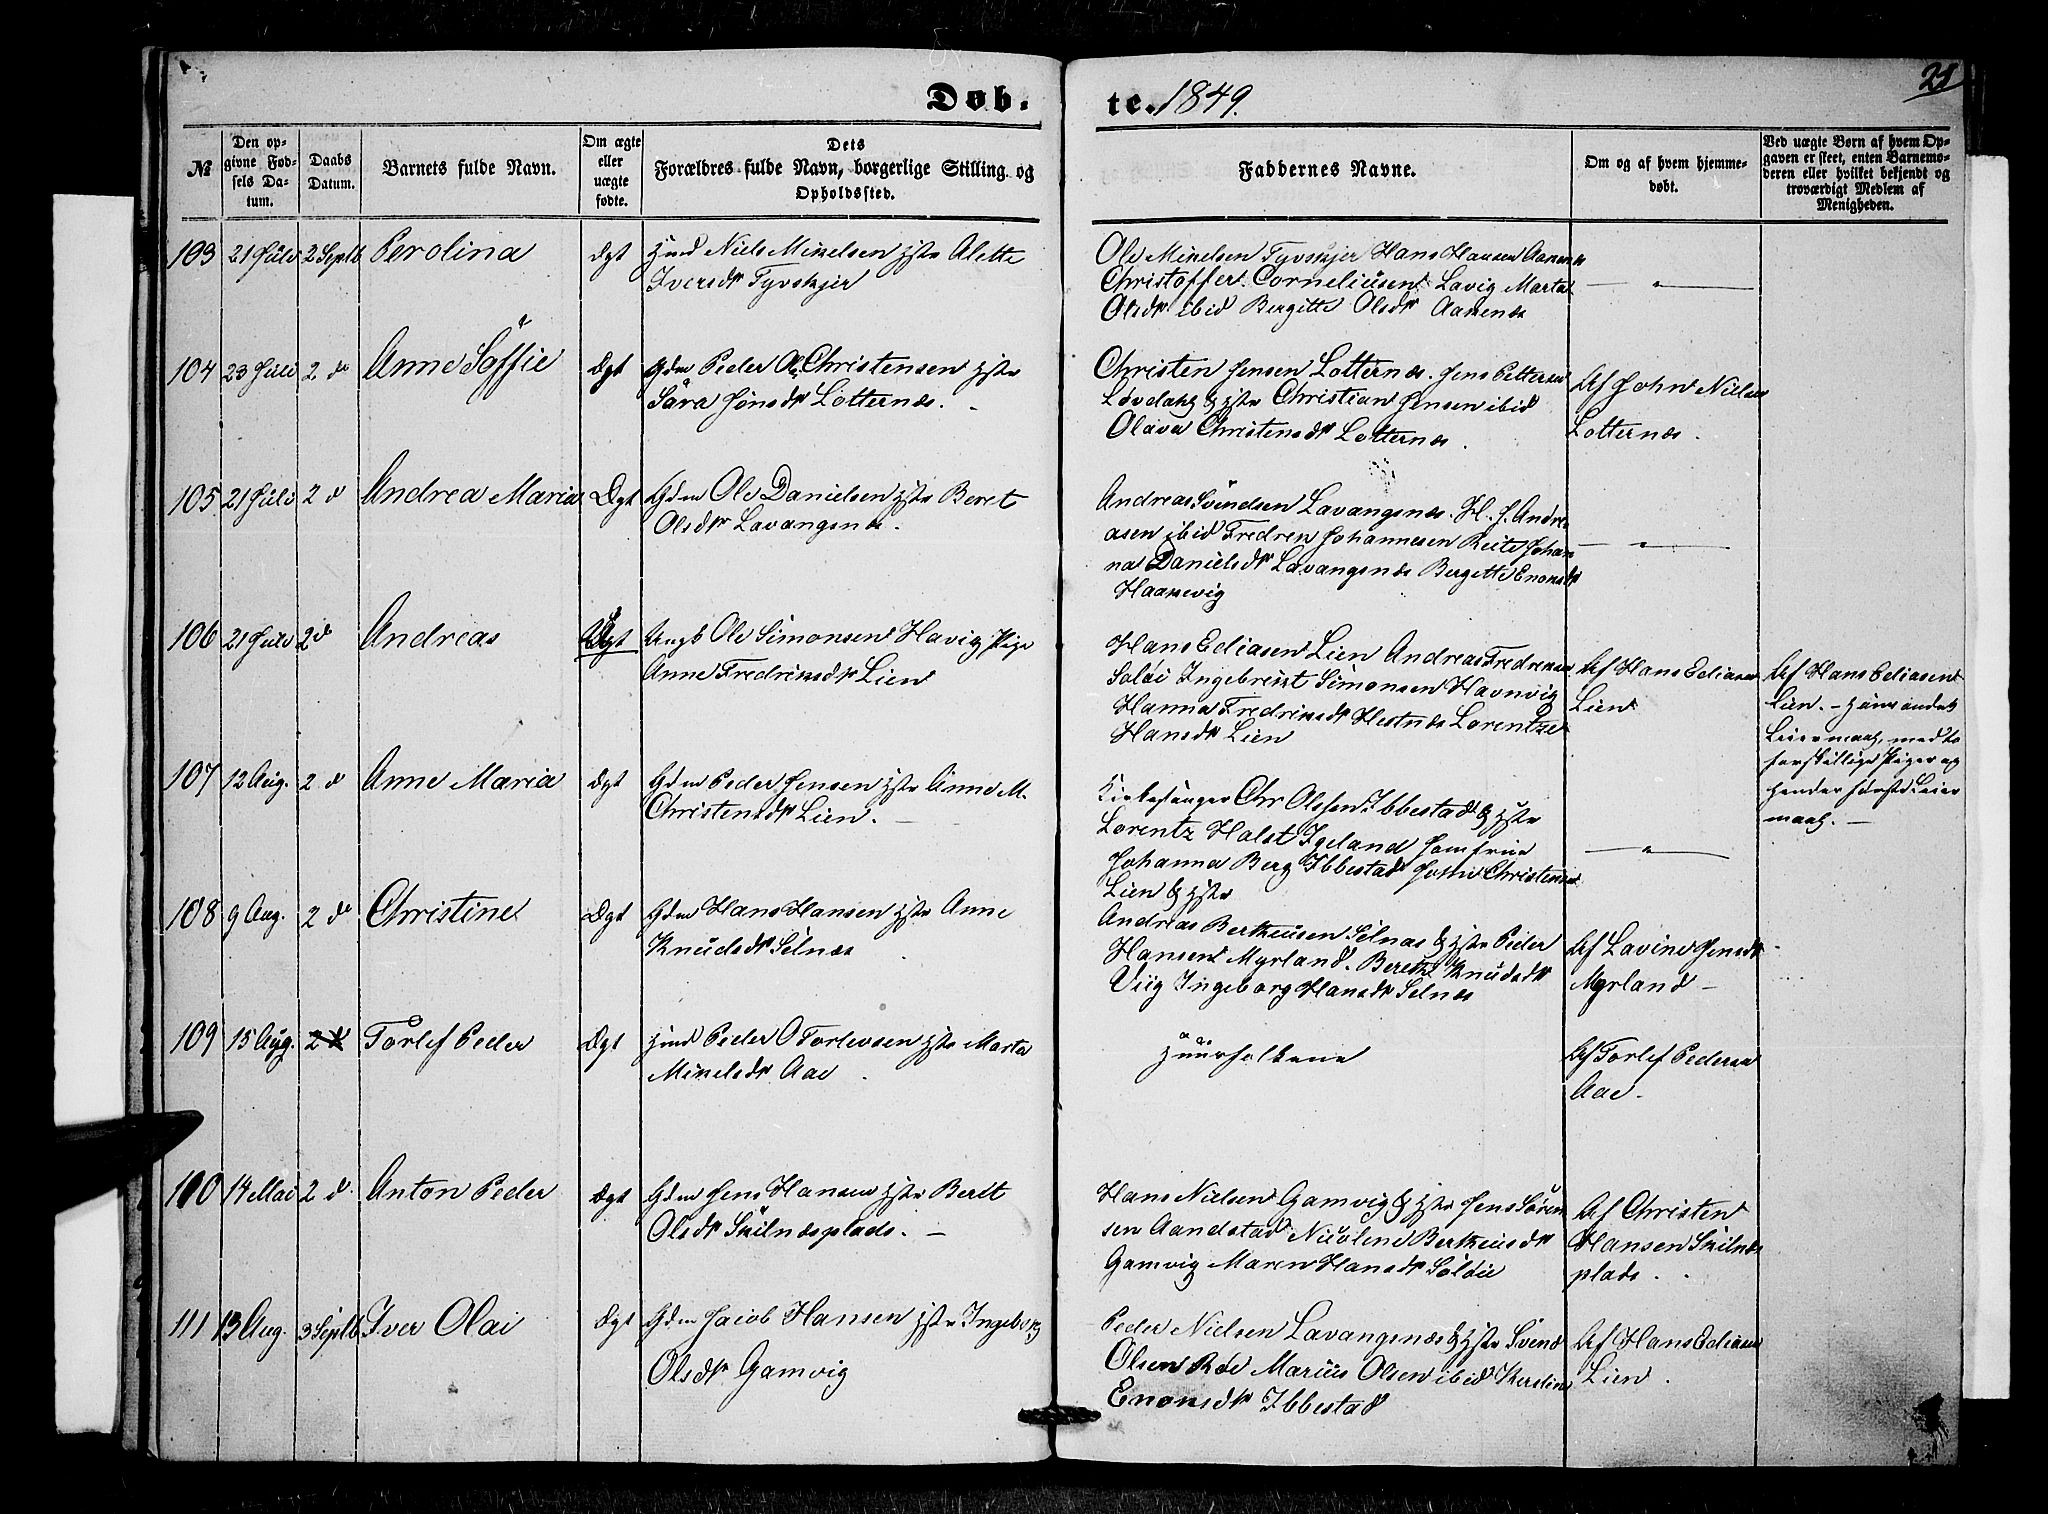 21
Døb-
te. 1849.
№
Den op-
givne Fød-
sels Da-
tum.
Daabs
Datum.
Barnets fulde Navn.
Om ægte
eller
uægte
fødte.
Dets
Forældres fulde Navn, borgerlige Stilling og
Opholdssted.
Faddernes Navne.
Om og af hvem hjemme-
døbt.
Ved uægte Børn af hvem Op-
gaven er skeet, enten Barnemo-
deren eller hvilket bekjendt og
troværdigt Medlem af
Menigheden.
103 21 Juli 2 Septb Perolina Ægt Niels Mikelsen Hst Alette
Iversdr Tyvskjer
Ole Mikelsen Tyvskjer Hans Hansen Aanenæs
Christoffer Corneliusen Lavig Marta
Olsdr ibid Bergitte Olsdr Aanenæs
— " —
104 23 Juli 2 do Anne Soffie Ægt Gdm Peder Ol Christensen Hst
Sara Jonsdr Lotternæs.
Christen Jensen Lotternæs. Jens Pettersen
Løvdahl & Hst Christian Jensen ibid
Olava Christensdr Lotternæs.
Af John Nielsen
Lotternæs.
105 21 Juli 2 d Andrea Maria Ægt Gdm Ole Danielsen Hst Beret
Olsdr Lavangsnæs.
Andreas Svendsen Lavangsnæs. H. J. Andre-
asen ibid Fredrik Johannesen Johan-
na Danielsdr Lavangsnæs Bergette Enoksdr
Haakevig
— " —
106 21 Juli 2 d Andreas Uægt Ungk Ole Simonsen Havig Pige
Anne Fredriksdr Lien
Hans Eliasen Lien Andreas Fredriksen
Soløi Ingebrikt Simonsen Havnvig
Hanna Fredriksdr Hestnæs Lorentze
Hansdr Lien
Af Hans Eliasen
Lien
Af Hans Eliasen
Lien. – Hans andet
Leiermaal, med to
forskjellige Piger og
hendes første Leier
maal. –
107 12 Aug. 2 d Anne Maria Ægt Gdm Peder Jensen Hst Anne M.
Christensdr Lien. –
Kirkesanger Chr Olssen Ibbestad & Hst
Lorentz Holst Igeland Jomfrue
Johanna Berg Ibbestad John Christensen
Lien & Hst
— " —
108 9 Aug. 2 do Christine Ægt Gdm Hans Hansen Hst Anne
Knudsdr Selnæs
Andreas Bertheusen Selnæs & Hst Peder
Hansen Myrland. Beret Knudsdr
Viig Ingeborg Hansdr Selnæs
Af Lavine Jensdr
Myrland –
109 15 Aug. 2 d Torlef Peder Ægt Peder O Torlevsen Hst Marta
Mikelsdr Aae.
Af Torlef Pedersen
Aae.
110 14 Mai 2 d. Anton Peder Ægt Gdm Jens Hansen Hst Berit
Olsdr Skilnæsplads. –
Hans Nielsen Gamvig & Hst Jens Søren
sen Aandstad Nicoline Bertheusdr
Gamvig Maren Hansdr Soløie
Af Christen
Hansen Skilnæs
plads.
111 13 Aug. 3 Septb Iver Olai Ægt Gdm Jacob Hansen Hst Ingeborg
Olsdr Gamvig
Peder Nielsen Lavangsnæs & Hst Svend
Olsen Røe Marius Olsen ibid Kirstine
Enoksdr Ibbestad
Af Hans Eliasen
Lien.